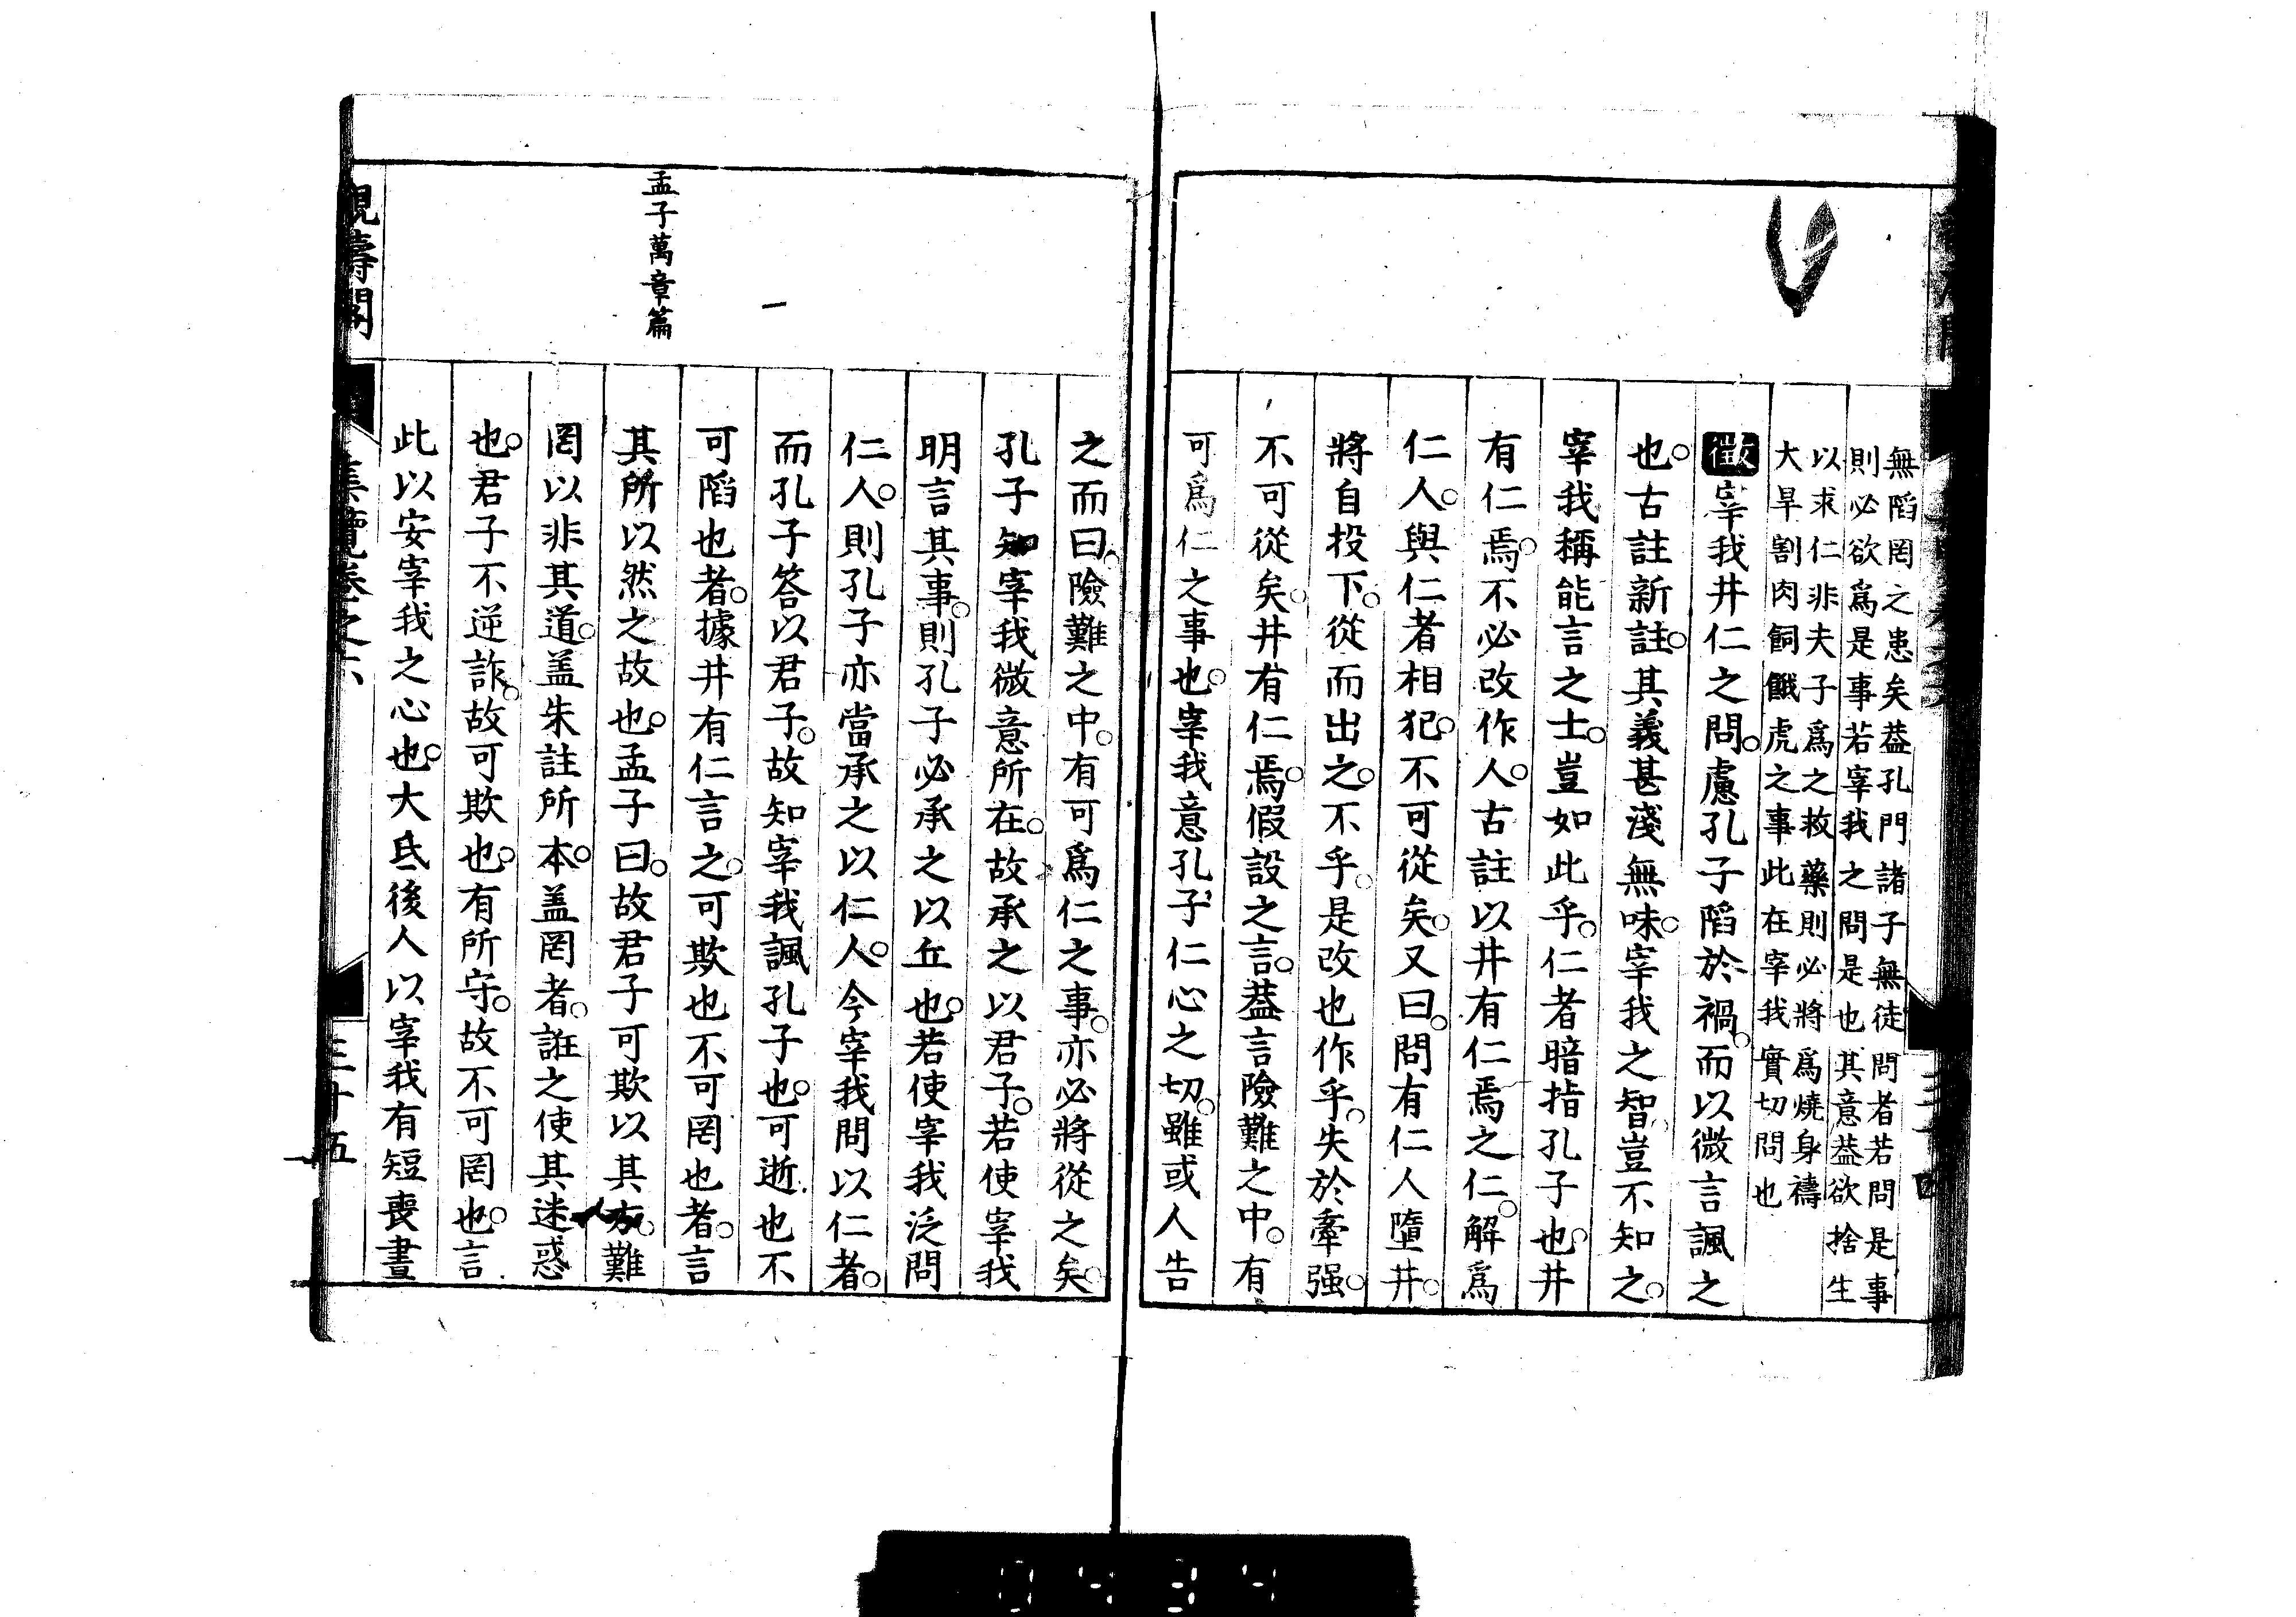 無陷罔之患矣葢孔門諸子無徒問者若問是事
則必欲爲是事若宰我之問是也其意葢欲捨生
以求仁非夫子爲之救藥則必將爲燒身禱
大旱割肉飼餓虎之事此在宰我實切問也
徵宰我井仁之問。慮孔子陷於禍。而以微言諷之
也。古註新註。其義甚淺無味。宰我之智。豈不知之。
宰我稱能言之士。豈如此乎。仁者暗指孔子也。井
有仁焉。不必改作人。古註以井有仁焉之仁。解爲
仁人。與仁者相犯。不可從矣。又曰。問有仁人墮井。
將自投下。從而出之。不乎。是改也作乎。失於牽强。
不可從矣。井有仁焉。假設之言。葢言險難之中。有
可爲仁之事也。宰我意孔子仁心之切。雖或人告
之而曰。險難之中。有可爲仁之事。亦必將從之矣。
孔子知宰我微意所在。故承之以君子。若使宰我
明言其事。則孔子必承之以丘也。若使宰我泛問
仁人。則孔子亦當承之以仁人。今宰我問以仁者。
而孔子答以君子。故知宰我諷孔子也。可逝也不
可陷也者。據井有仁言之。可欺也不可罔也者。言
孟子萬章篇
其所以然之故也。孟子曰。故君子可欺以其方。難
罔以非其道。盖朱註所本。盖罔者。誑之使其迷惑
也。君子不逆詐。故可欺也。有所守。故不可罔也。言
此以安宰我之心也。大氐後人以宰我有短喪晝
觀濤閣
集覽卷之六
三十五
0434